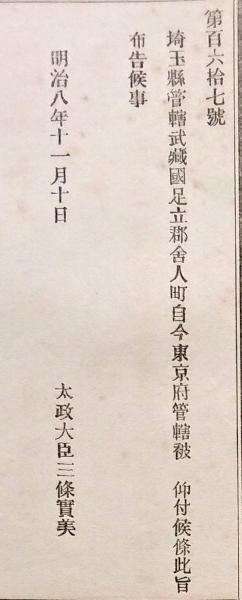 第百六拾七號
埼玉縣管轄武藏國足立郡舍人町自今東京府管轄被　仰付候條此旨
布告候事
明治八年十一月十日　太政大臣三條實美